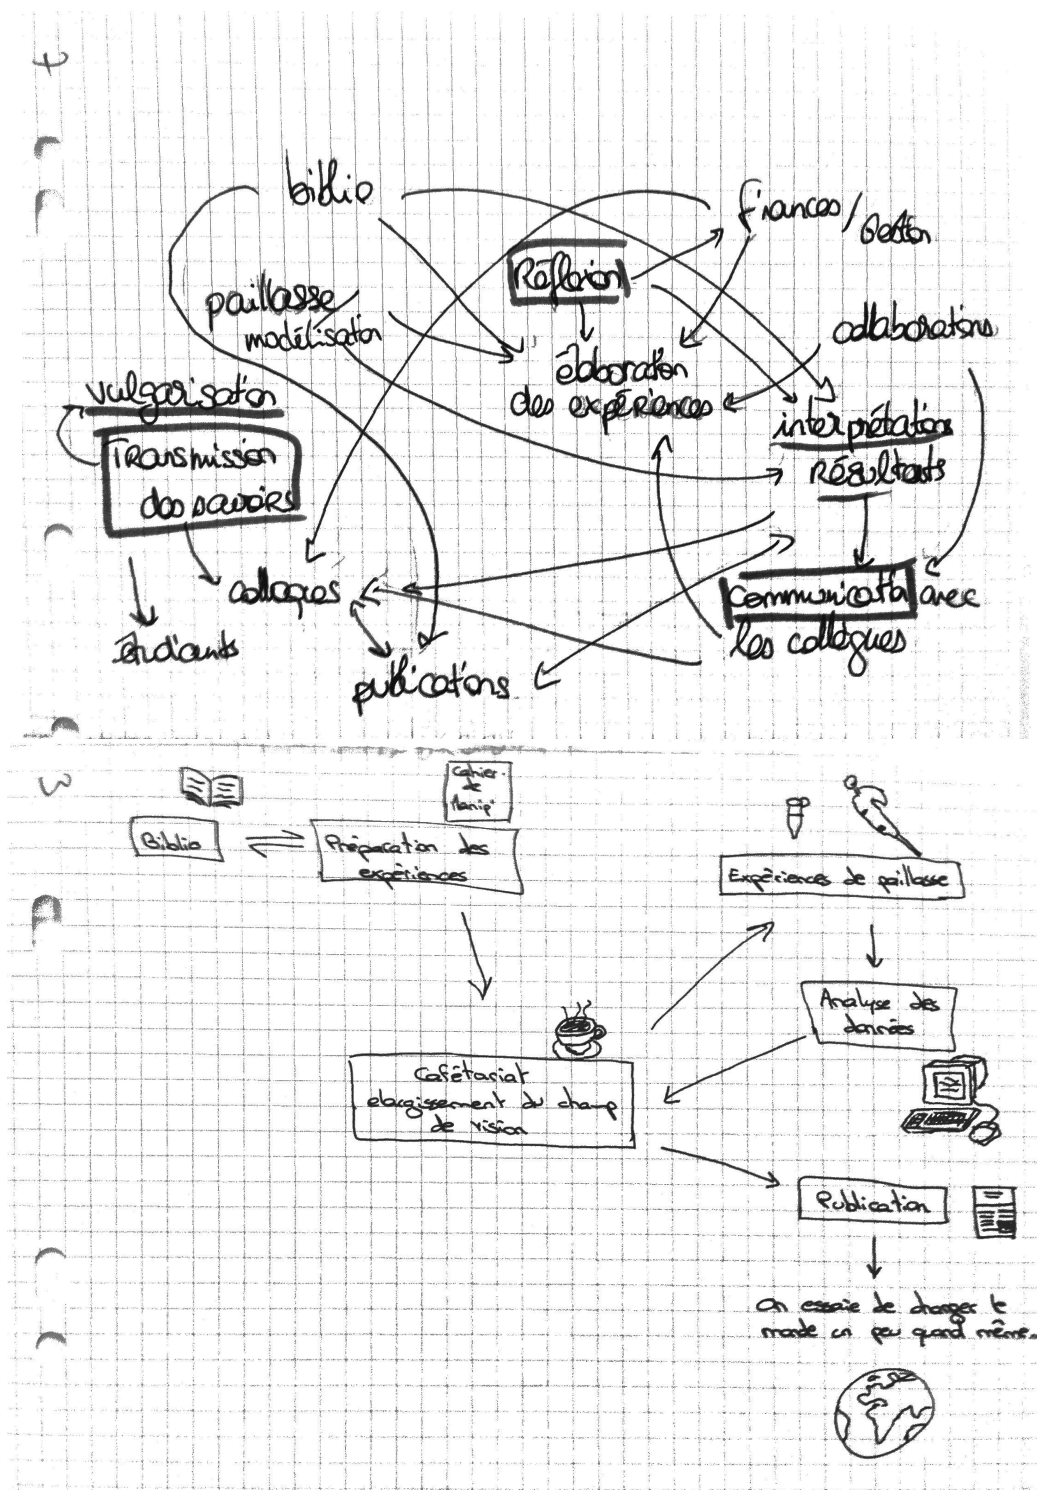 biblio
finances / Gestion
Réflexion
paillasse
modélisation
collaborations
élaboration
des expériences
vulgarisation
interprétations
Transmission
des savoirs
Résultats
colloques
communicat° avec
les collègues
étudiants
publications
Cahier
de
Manip°
Biblio
Préparation des
expériences
Expériences de paillasse
Analyse des
données
Cafétariat
elargissement du champ
de vision
Publication
On essaie de changer le
monde un peu quand même.